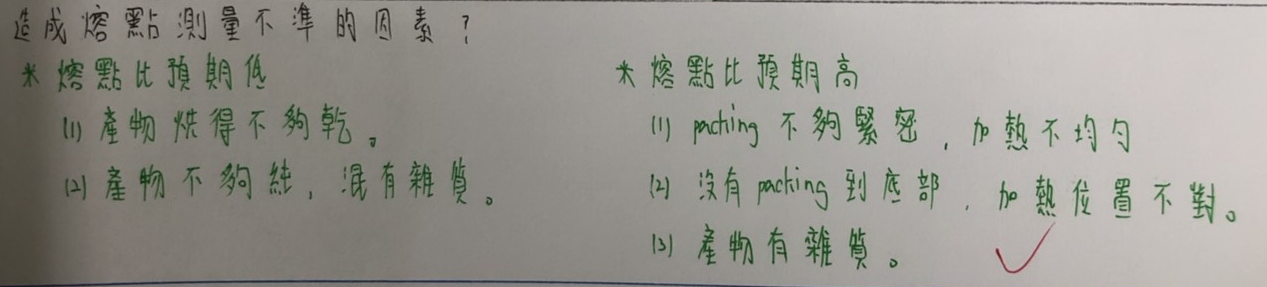 造成熔點測量不準的因素？
* 熔點比預期低
(1) 產物烘得不夠乾。
(2) 產物不夠純，混有雜質。
* 熔點比預期高
(1) packing 不夠緊密，加熱不均勻
(2) 沒有packing到底部，加熱位置不對。
(3) 產物有雜質。